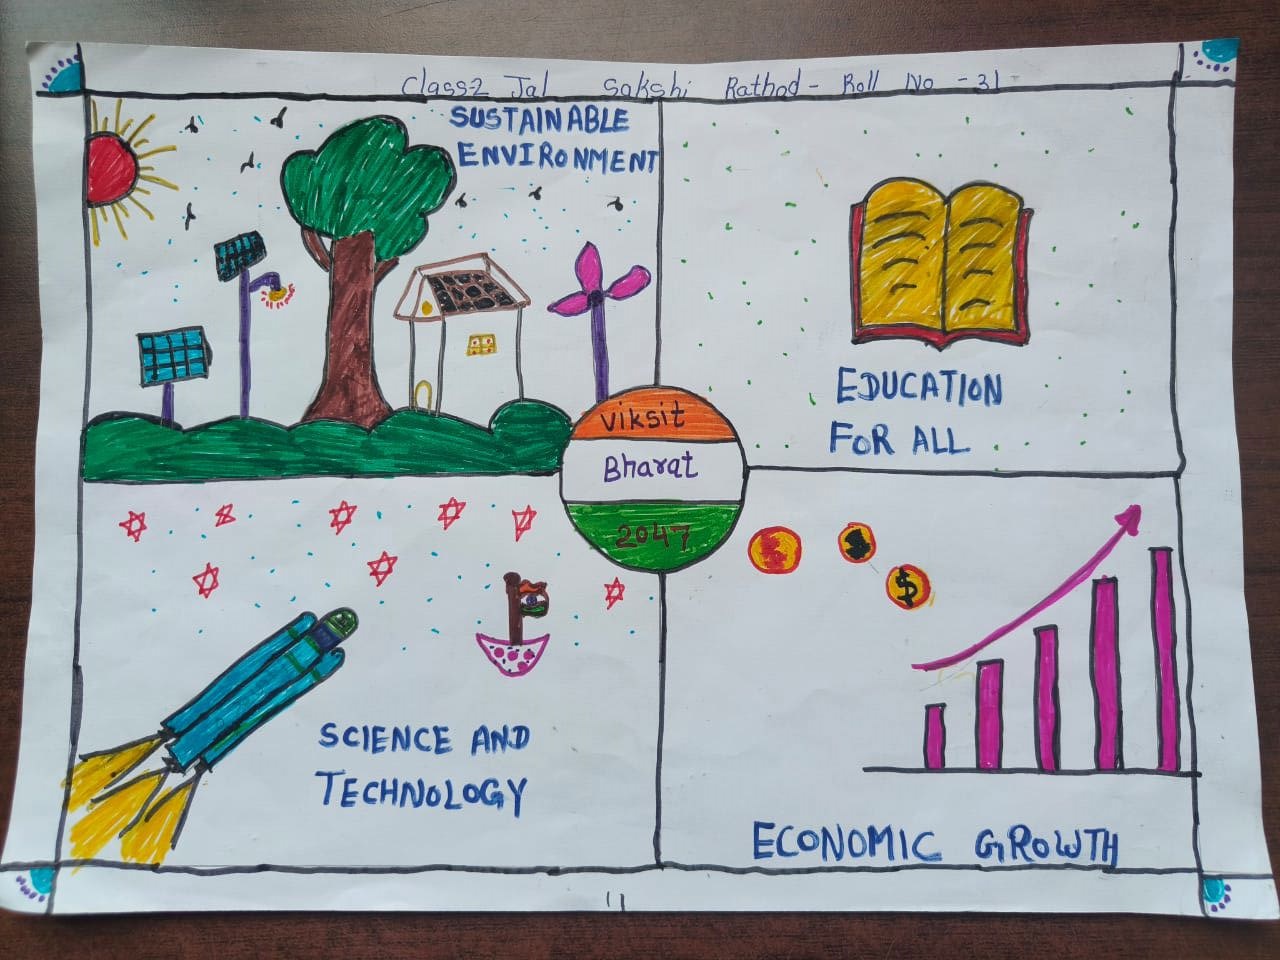 Class-2 Jal Sakshi Rathod - Roll No - 31
SUSTAINABLE
ENVIRONMENT
EDUCATION
FOR ALL
Viksit
Bharat
2047
$
SCIENCE AND
TECHNOLOGY
ECONOMIC GROWTH